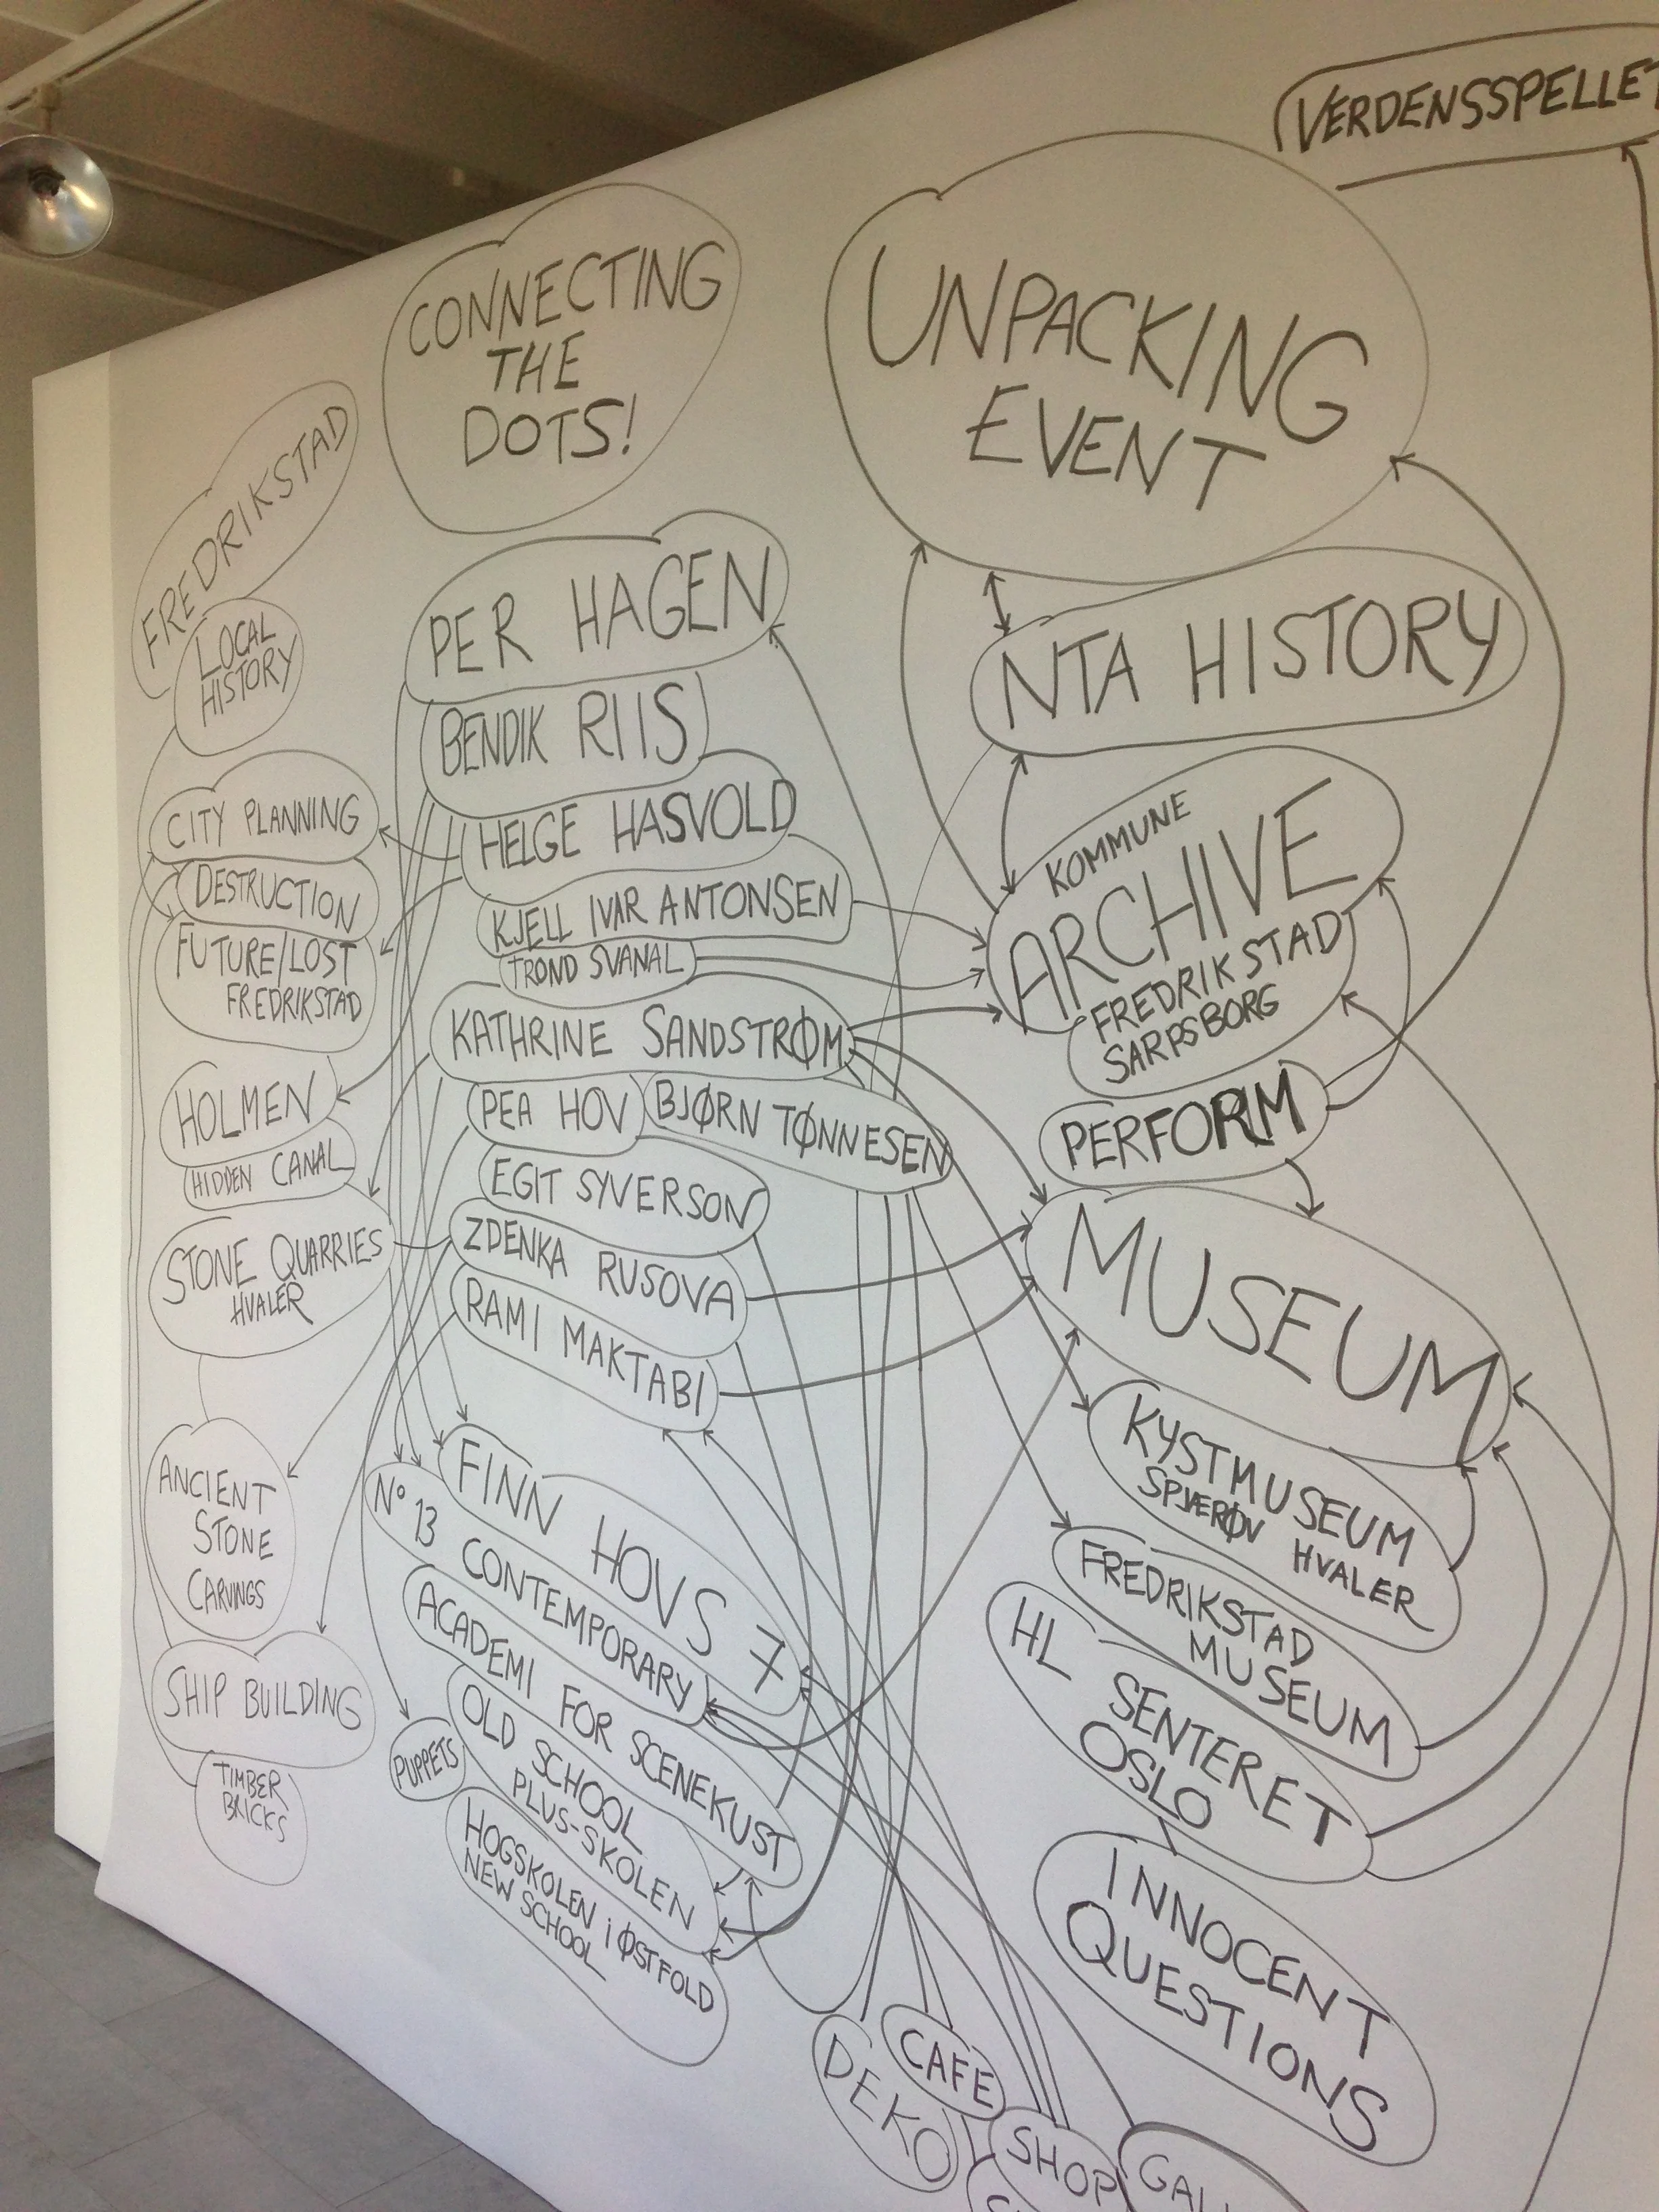 VERDENSSPELLET
CONNECTING
THE
DOTS!
UNPACKING
EVENT
FREDRIKSTAD
LOCAL
HISTORY
CITY PLANNING
DESTRUCTION
FUTURE/LOST
FREDRIKSTAD
HOLMEN
HIDDEN CANAL
STONE QUARRIES
HVALER
ANCIENT
STONE
CARVINGS
SHIP BUILDING
TIMBER
BRICKS
PER HAGEN
BENDIK RIIS
HELGE HASVOLD
KJELL IVAR ANTONSEN
TROND SVANAL
KATHRINE SANDSTRØM
PEA HOV
BJØRN TØNNESEN
EGIT SYVERSON
ZDENKA RUSOVA
RAMI MAKTABI
FINN HOVS 7
Nº 13 CONTEMPORARY
ACADEMI FOR SCENEKUST
OLD SCHOOL
PLUS-SKOLEN
PUPPETS
HOGSKOLEN i ØSTFOLD
NEW SCHOOL
NTA HISTORY
KOMMUNE
ARCHIVE
FREDRIKSTAD
SARPSBORG
PERFORM
MUSEUM
KYSTMUSEUM
SPJÆRØY HVALER
FREDRIKSTAD
MUSEUM
HL SENTERET
OSLO
INNOCENT
QUESTIONS
DEKO
CAFE
SHOP
GAL